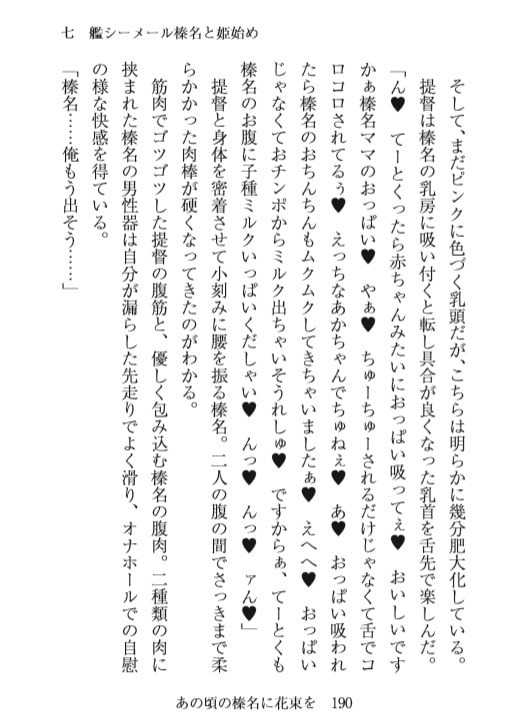 七　艦シーメール榛名と姫始め
そして、まだピンクに色づく乳頭だが、こちらは明らかに幾分肥大化している。
提督は榛名の乳房に吸い付くと転し具合が良くなった乳首を舌先で楽しんだ。
「ん♥　てーとくったら赤ちゃんみたいにおっぱい吸ってぇ♥　おいしいです
かぁ榛名ママのおっぱい♥　やぁ♥　ちゅーちゅーされるだけじゃなくて舌でコ
ロコロされてるぅ♥　えっちなあかちゃんでちゅねぇ♥　あ♥　おっぱい吸われ
たら榛名のおちんちんもムクムクしてきちゃいましたぁ♥　えへへ♥　おっぱい
じゃなくておチンポからミルク出ちゃいそうれしゅ♥　ですからぁ、てーとくも
榛名のお腹に子種ミルクいっぱいくだしゃい♥　んっ♥　んっ♥　ァん♥」
提督と身体を密着させて小刻みに腰を振る榛名。二人の腹の間でさっきまで柔
らかかった肉棒が硬くなってきたのがわかる。
筋肉でゴツゴツした提督の腹筋と、優しく包み込む榛名の腹肉。二種類の肉に
挟まれた榛名の男性器は自分が漏らした先走りでよく滑り、オナホールでの自慰
の様な快感を得ている。
「榛名……俺もう出そう……」
あの頃の榛名に花束を　190